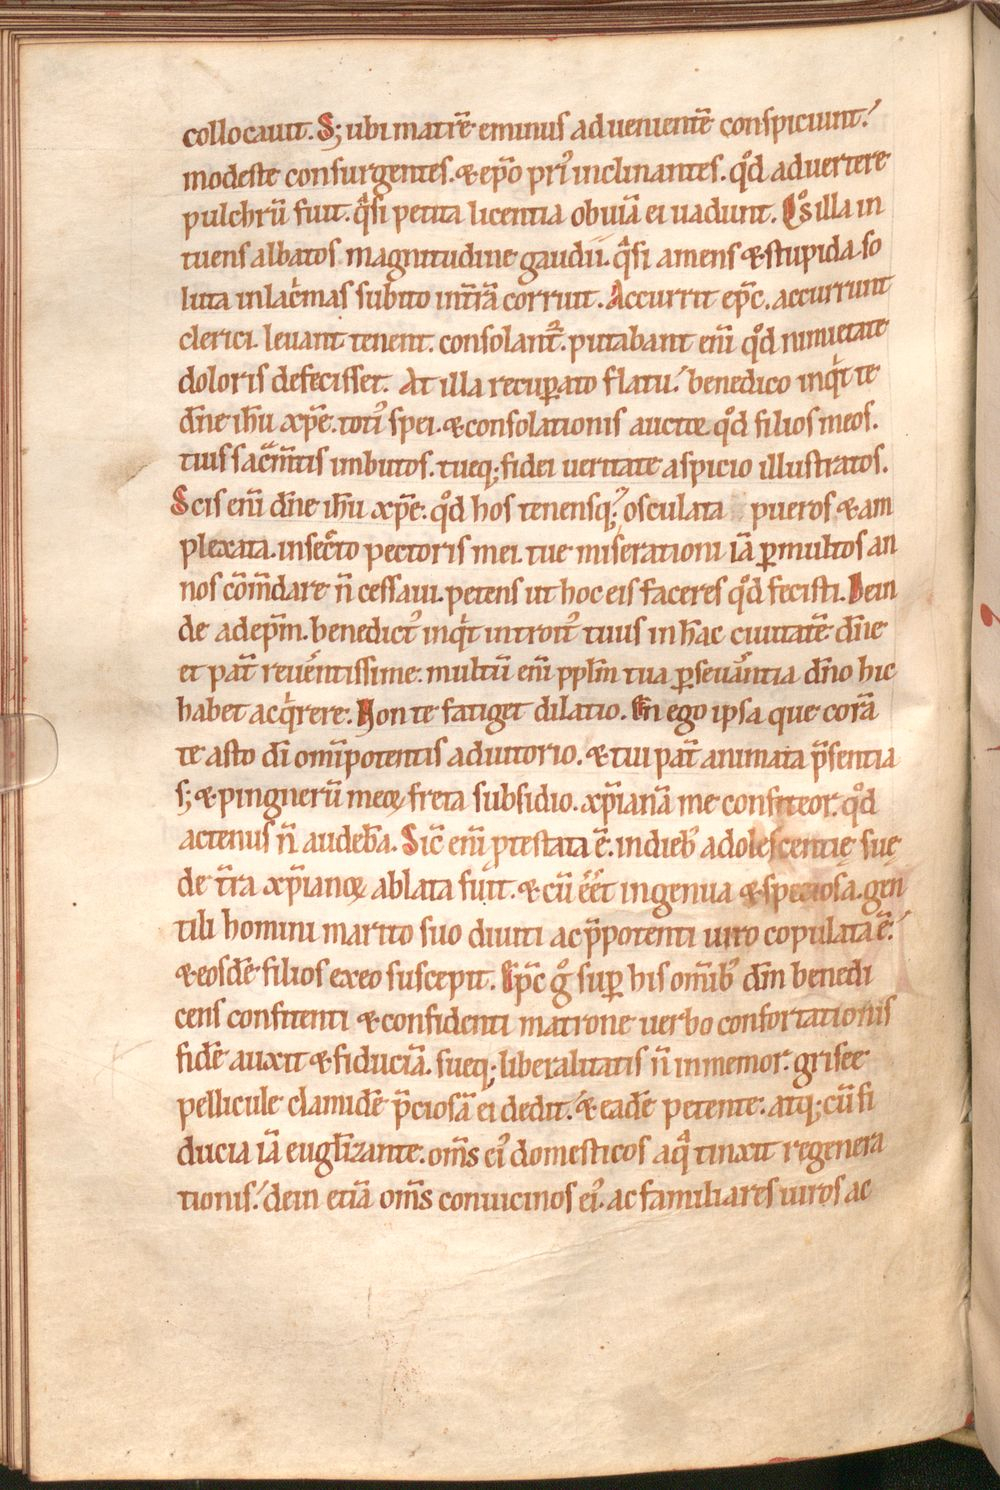 collocauit. S; ubi matrē eminus aduenientē conspiciunt.
modeste consurgentes. & ep̄o pri᷒ inclinantes. qd̊ aduertere
pulchrū fuit. qͣsi petita licentia obuiā ei uadunt. Qͦs illa in
tuens albatos. magnitudine gaudii. qͣsi amens & stupida. so
luta in lac̓mas subito in t̄rā corruit. Accurrit ep̄c. accurrunt
clerici. leuant tenent. consolant᷑. putabant eni̅ qd̊ nimietate
doloris defecisset. At illa recuꝑato flatu. benedico inqͥt te
dn̄e ih̅u xp̅e. toti᷒ spei. & consolationis auctor. qd̊ filios meos.
tuis sac̓m̅tis imbutos. tueq; fidei ueritate aspicio illustratos.
Scis eni̅ dn̄e ih̅u xp̅e. qd̊ hos tenensq; osculata pueros & am
plexata. in sec̓to pectoris mei. tue miserationi iā ꝑ multos an
nos cōm̅dare n̄ cessaui. petens ut hoc eis faceres qd̊ fecisti. Dein
de ad ep̄m. benedict᷒ inqͥt introit᷒ tuus in hac ciuitatē dn̄e
et pat̄ reuēntissime. multū eni̅ pp̅lm tua ꝑseuantia dn̄o hic
habet acqͥrere. Non te fatiget dilatio. En ego ipsa que corā
te asto di̅ omi̅potentis adiutorio. & tui pat̄ animata p̄sentia
s; & pingnerū meoꝝ freta subsidio. xp̅ianā me confiteor. qd̊
actenus n̄ audeba̅. Sic̄ eni̅ ꝓtestata ē. in dieb᷒ adolescentię suę
de t̄ra xp̅ianoꝝ ablata fuit. & cū ēēt ingenua & speciosa. gen
tili homini marito suo diuiti ac p̄potenti uiro copulata ē.
& eosdē filios ex eo suscepit. Ep̄c gͦ suꝑ his omi̅b᷒ dm̅ benedi
cens confitenti & confidenti matrone uerbo confortationis
fidē auxit & fiduciā. sueq; liberalitatis n̄ inmemor. grisee
pellicule clamidē p̄ciosā ei dedit. & eadē petente. atq; cū fi
ducia iā eugl̅izante. om̅s ei᷒ domesticos aqͣ tinxit regenera
tionis. dein etiā om̅s conuicinos ei᷒. ac familiares uiros ac